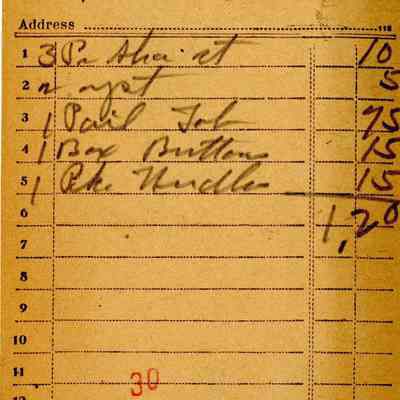 Address 118
1 3 Pr Sha st 10
2 2 5
3 1 Pail Tob 75
4 1 Box Buttons 15
5 1 Pke Needles 15
6 1,20
7
8
9
10
11
30